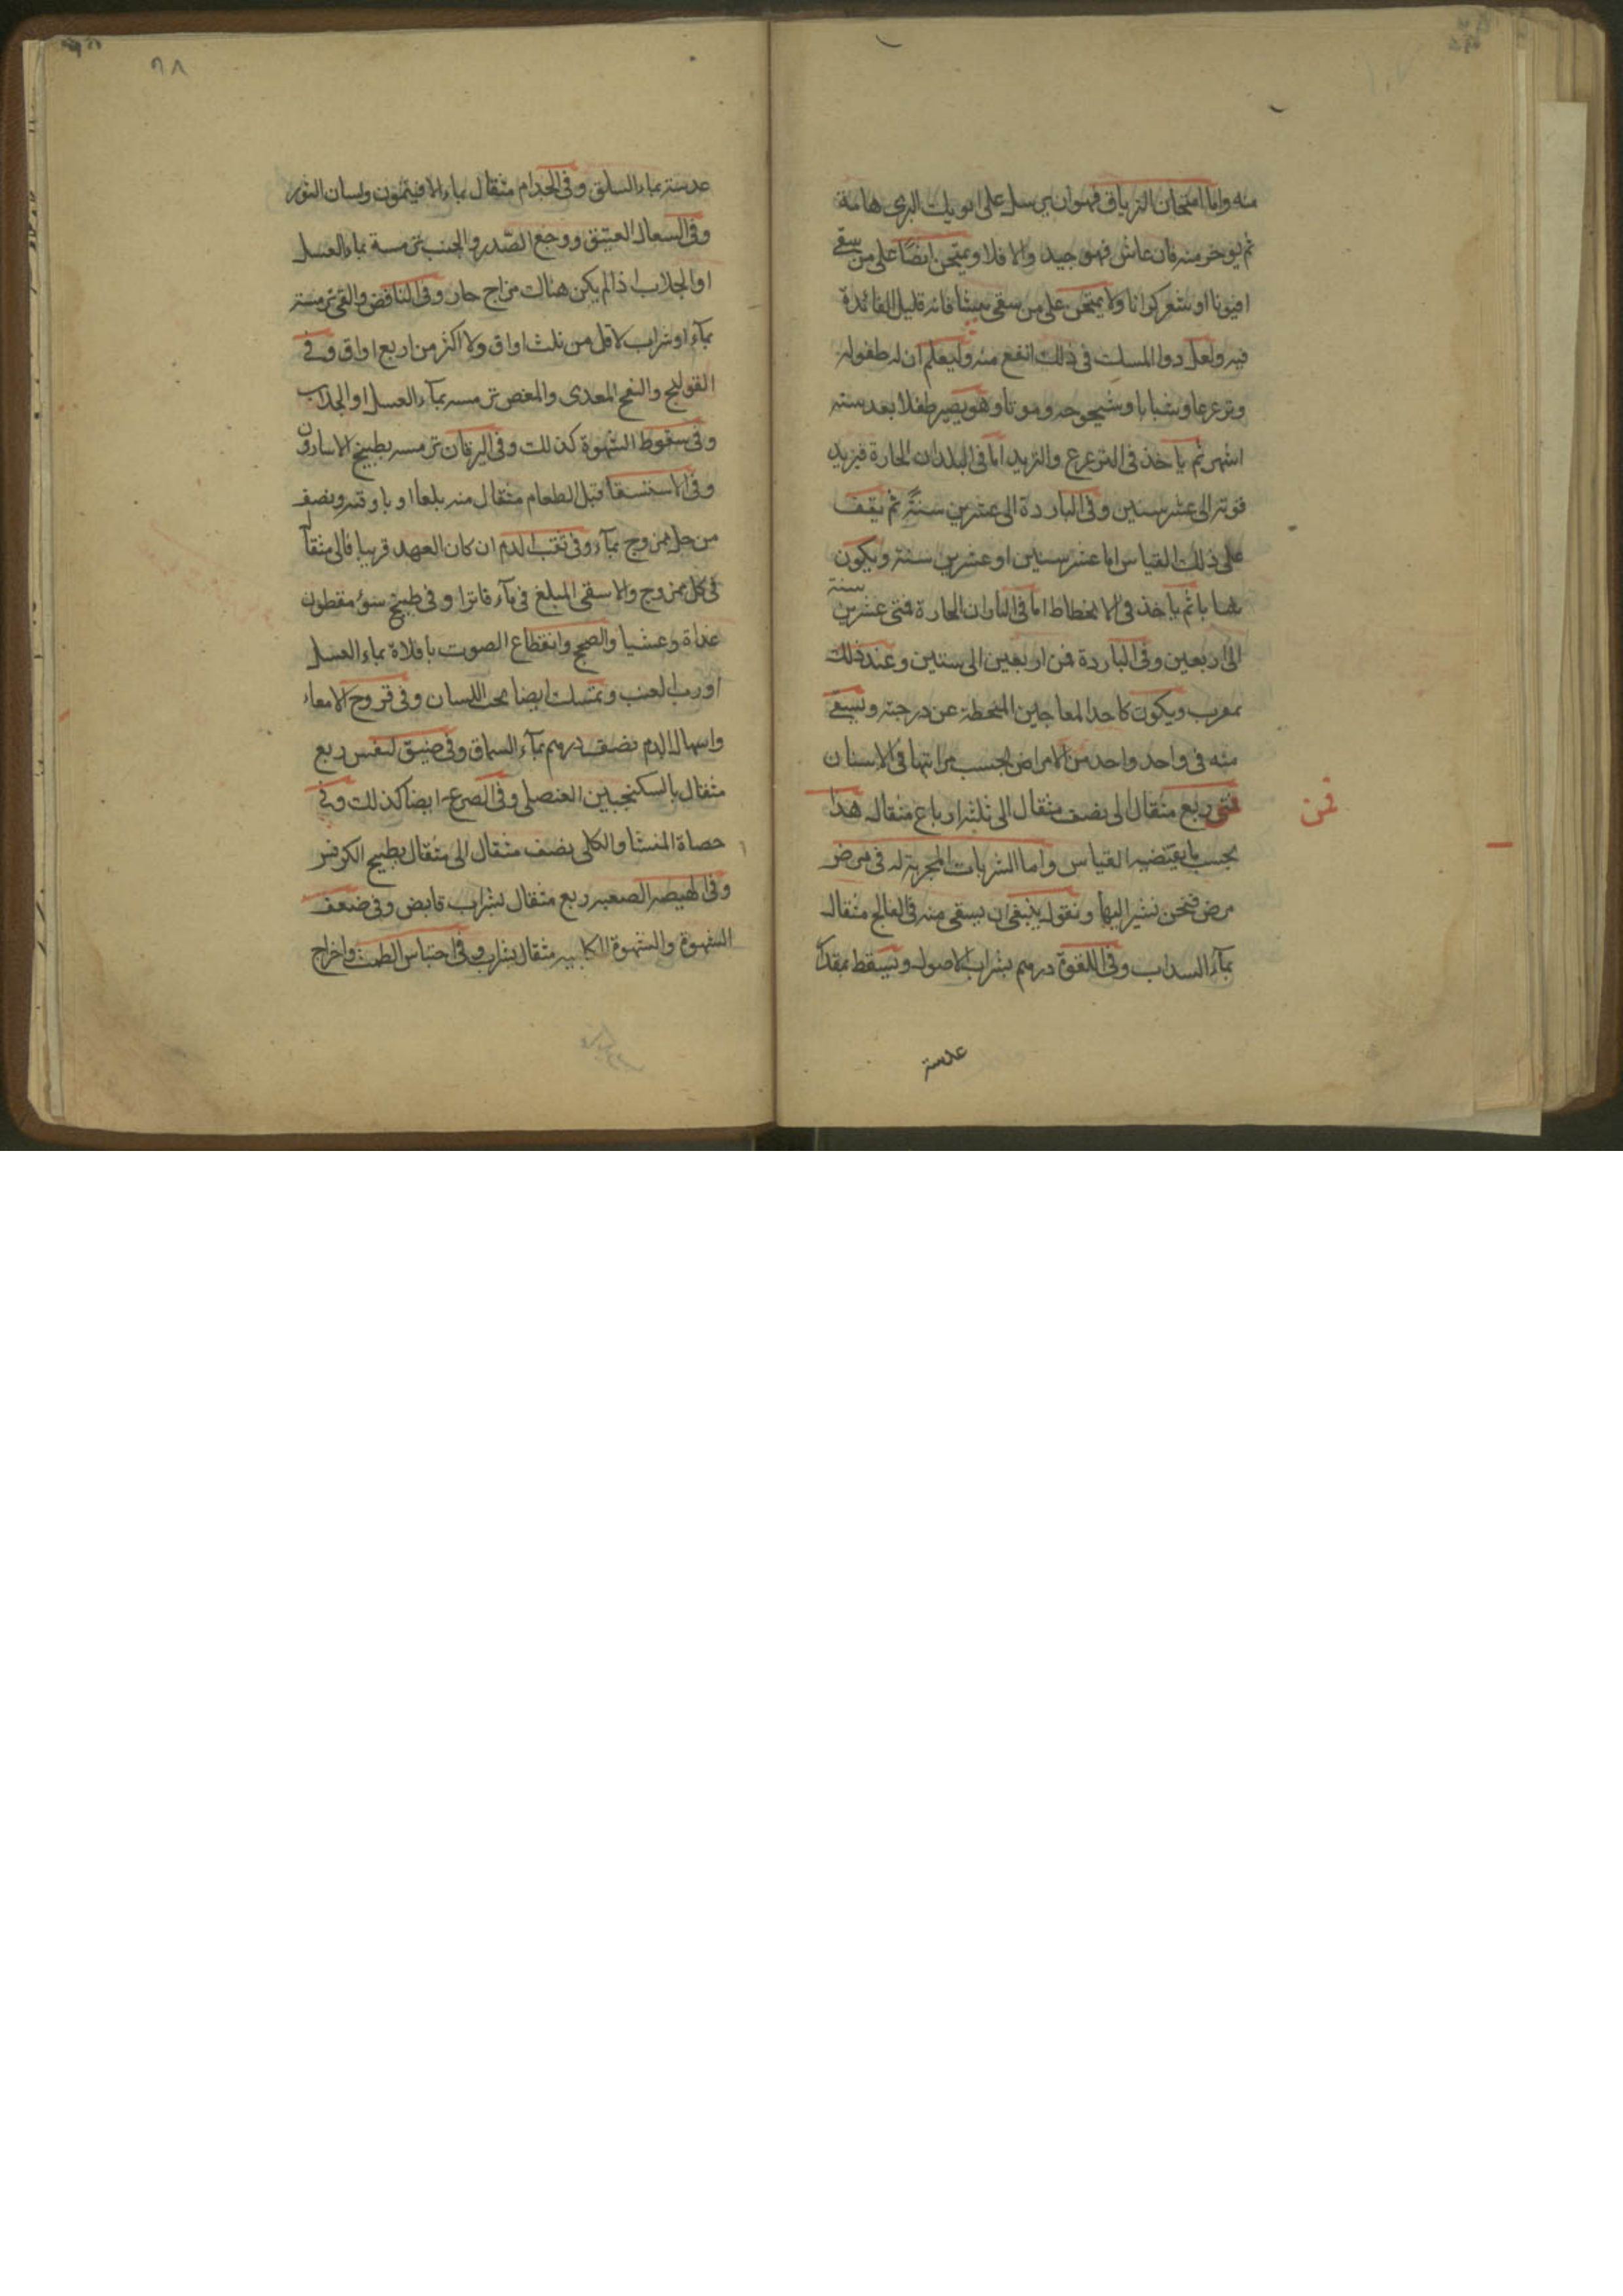 منه واما امتحان الترياق فهو ان يرسل على الديك البرى هامة
ثم يوجر منه فان عاش فهو جيد والا فلا ويمتحن ايضًا على من سقى
افيونا او ولا يمتحن على من سقى بيشا فانه قليل الفائدة
فيه ولعل دوا المسك فى ذلك انفع منه وليعلم ان له طفوليه
وترعرعا وشبابا وشيخوخه وموتا وهو يصير طفلا بعد سته
اشهر ثم ياخذ فى الترعرع والتزيد اما فى البلدان الحارة فيزيد
قوته الى عشر سنين وفى الباردة الى عشرين سنةً ثم يقف
على ذلك القياس اما عشر سنين او عشرين سنة ويكون
شبابا ثم ياخذ فى الانحطاط اما فى البلدان الحارة فمن عشرين سنة
الى اربعين وفى الباردة فمن اربعين الى ستين وعند ذلك
ويكون كاحد المعاجين المنحطة عن درجته ويسقى
منه فى واحد واحد من الامراض بحسب مراتبها فى الاسنان
فمن ربع مثقال الى نصف مثقال الى ثلثه ارباع مثقال هذا
فمن
بحسب ما يقتضيه القياس واما الشربات المجربة له فى مرض
مرض فنحن نشير اليها ونقول ينبغى ان يسقى منه فى الفالج مثقال
بماء السداب وفى اللقوة درهم بشراب الاصول ويسقط بمقدار
عدسة
٩٨
عدسة بماء السلق وفى الجذام مثقال بماء الافيثمون ولسان الثور
وفى السعال العتيق ووجع الصّدر والجنب ترمسة بماء العسل
او الجلاب اذا لم يكن هناك مزاج حار وفى النافض والقى ترمسة
بماء او شراب لا اقل من ثلث اواق ولا اكثر من اربع اواق وفى
القولنج والنفخ المعدى والمغص ترمسه بماء العسل او الجلاب
وفى سقوط الشهوة كذلك وفى اليرقان ترمسه بطبيخ الاسارون
وفى الاستسقا قبل الطعام مثقال منه بلعا او باوقيه ونصف
من خل ممزوج بماء وفى نفث الدم ان كان العهد قريبا فالى مثقال
فى خل ممزوج والا سقى المبلغ فى ماء فاترا وفى طبيخ مقطون
غداة وعشيا والصحج وانقطاع الصوت باقلاة بماء العسل
او رب العنب وتمسك ايضا تحت اللسان وفى قروح الامعاء
واسهال الدم نصف درهم بماء السماق وفى ضيق النفس ربع
مثقال بالسكنجبين العنصلى وفى الصرع ايضا كذلك وفى
حصاة المثانا والكلى نصف مثقال الى مثقال بطبيخ الكرفس
وفى الهيضه الصعبه ربع مثقال بشراب قابض وفى ضعف
الشهوة والشهوة الكلبيه مثقال بشراب وفى احتباس الطمث واخراج